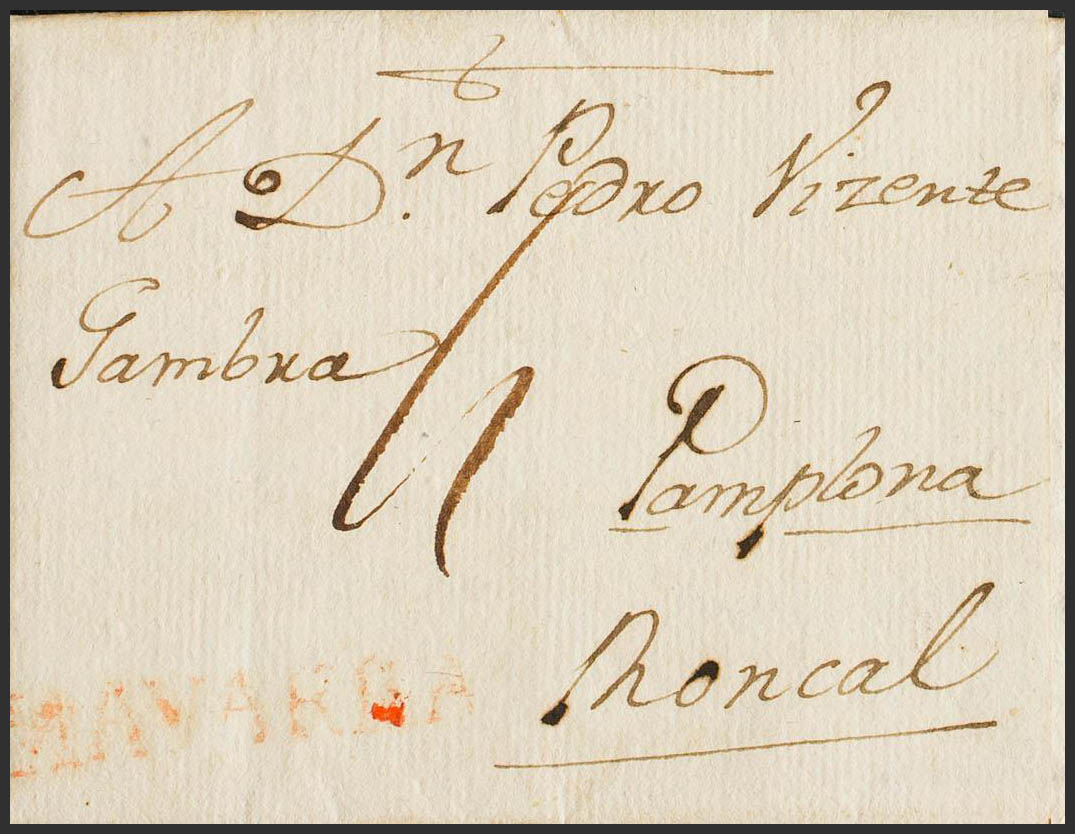 A D.n Pedro Vizente
Gambra
Pamplona
Roncal
NAVARRA